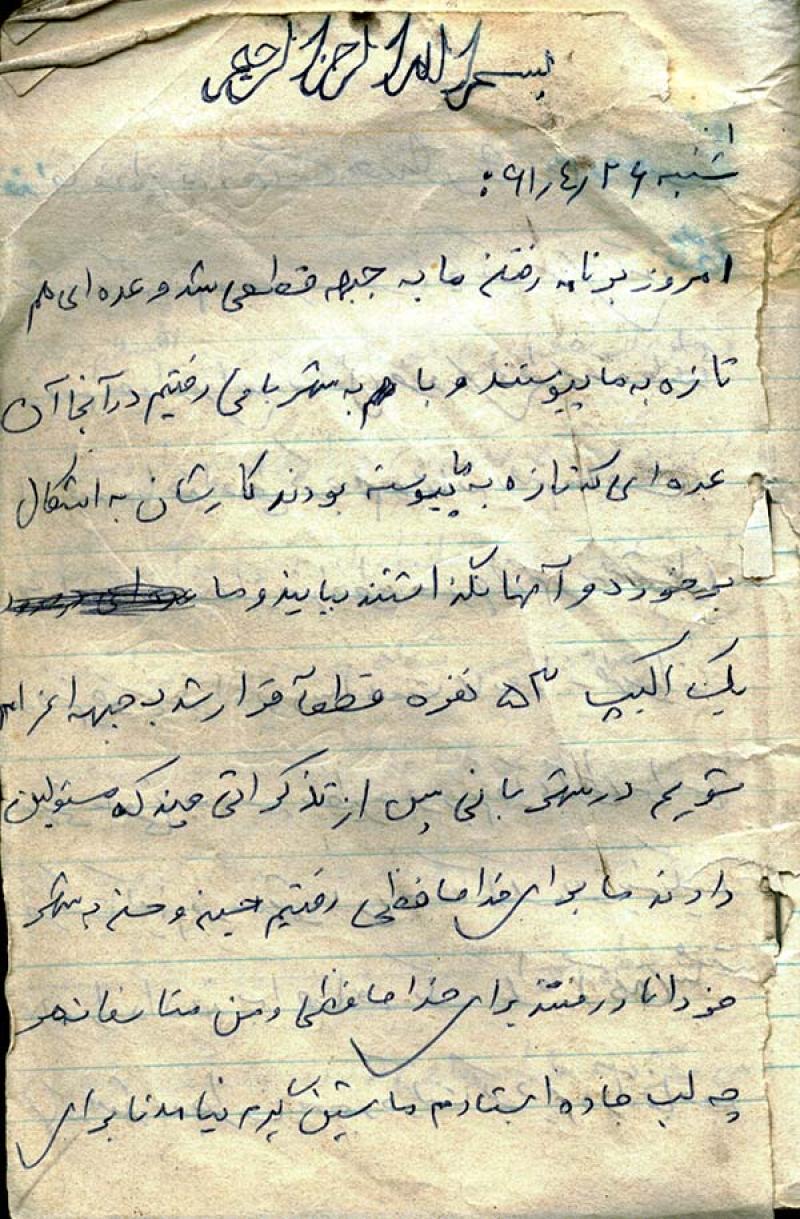 بسم الله الرحمن الرحیم
شنبه ۶۱٫۴٫۲۶ :
امروز برنامه رفتن ما به جبهه قطعی شد و عده ای هم
تازه به ما پیوستند و با هم به شهربانی رفتیم در آنجا آن
عده ای که تازه به ما پیوسته بودند کارشان به اشکال
برخورد و آنها نگذاشتند بیایند و ما
یک اکیپ ۵۳ نفره قطعاً قرار شد به جبهه اعزام
شویم در شهربانی پس از تذکراتی چند که مسئولین
دادند ما برای خداحافظی رفتیم حسین و حسن به شهر
خود انار رفتند برای خداحافظی و من متاسفانه هر
چه لب جاده ایستادم ماشین گیرم نیامد تا برای